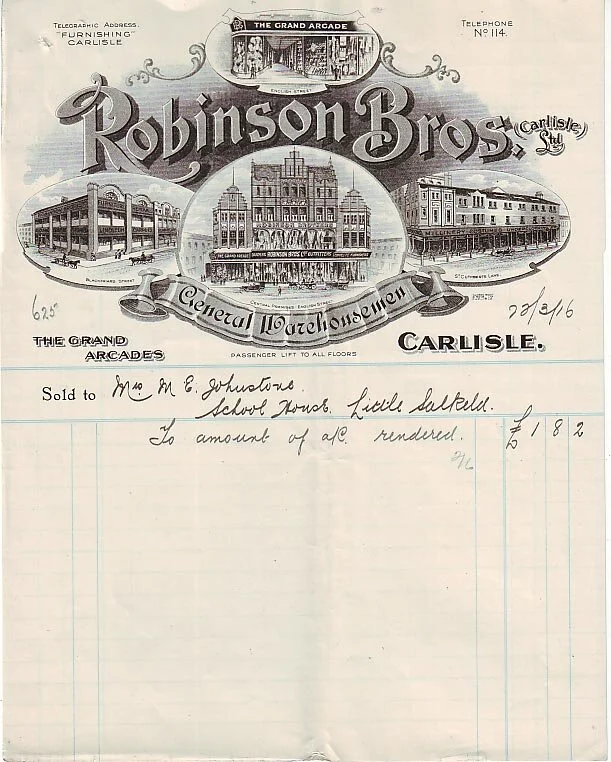 TELEGRAPHIC ADDRESS.
"FURNISHING"
CARLISLE
THE GRAND ARCADE
ENGLISH STREET
TELEPHONE
No 114.
Robinson Bros. (Carlisle) Ltd.
BLACKFRIARS STREET
CENTRAL PREMISES ENGLISH STREET
ST CUTHBERTS LANE.
General Warehousemen
625
22/3/16
THE GRAND
ARCADES
PASSENGER LIFT TO ALL FLOORS
CARLISLE.
Sold to Mrs M. E. Johnstone.
School House, Little Salkeld.
To amount of a/c. rendered. £ 1 8 2